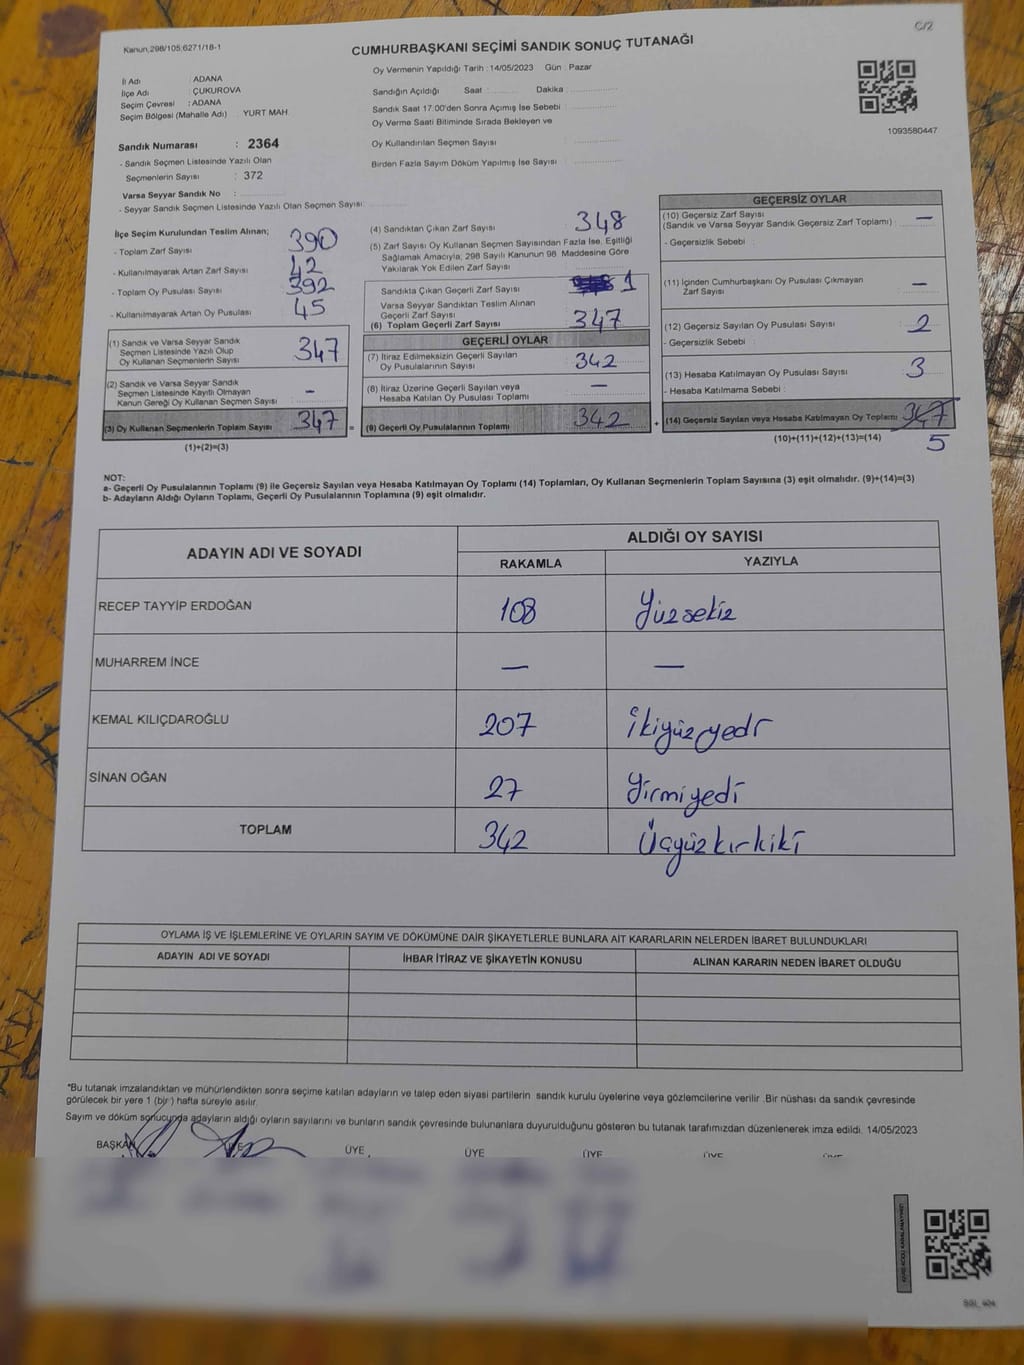 C/2
Kanun,298/105,6271/18-1
CUMHURBAŞKANI SEÇİMİ SANDIK SONUÇ TUTANAĞI
Oy Vermenin Yapıldığı Tarih : 14/05/2023 Gün : Pazar
İl Adı : ADANA
İlçe Adı : ÇUKUROVA
Seçim Çevresi : ADANA
Seçim Bölgesi (Mahalle Adı) : YURT MAH.
Sandığın Açıldığı Saat : Dakika
Sandık Saat 17:00'den Sonra Açımış İse Sebebi :
Oy Verme Saati Bitiminde Sırada Bekleyen ve
Oy Kullandırılan Seçmen Sayısı :
Birden Fazla Sayım Döküm Yapılmış İse Sayısı :
1093580447
Sandık Numarası : 2364
- Sandık Seçmen Listesinde Yazılı Olan
Seçmenlerin Sayısı : 372
Varsa Seyyar Sandık No :
- Seyyar Sandık Seçmen Listesinde Yazılı Olan Seçmen Sayısı:
İlçe Seçim Kurulundan Teslim Alınan;
- Toplam Zarf Sayısı 390
- Kullanılmayarak Artan Zarf Sayısı 42
- Toplam Oy Pusulası Sayısı 392
- Kullanılmayarak Artan Oy Pusulası 45
(1) Sandık ve Varsa Seyyar Sandık
Seçmen Listesinde Yazılı Olup
Oy Kullanan Seçmenlerin Sayısı 347
(2) Sandık ve Varsa Seyyar Sandık
Seçmen Listesinde Kayıtlı Olmayan
Kanun Gereği Oy Kullanan Seçmen Sayısı : -
(3) Oy Kullanan Seçmenlerin Toplam Sayısı 347 =
(1)+(2)=(3)
(4) Sandıktan Çıkan Zarf Sayısı 348
(5) Zarf Sayısı Oy Kullanan Seçmen Sayısından Fazla İse, Eşitliği
Sağlamak Amacıyla, 298 Sayılı Kanunun 98. Maddesine Göre
Yakılarak Yok Edilen Zarf Sayısı :
Sandıkta Çıkan Geçerli Zarf Sayısı 1
Varsa Seyyar Sandıktan Teslim Alınan
Geçerli Zarf Sayısı
(6) Toplam Geçerli Zarf Sayısı 347
GEÇERLİ OYLAR
(7) İtiraz Edilmeksizin Geçerli Sayılan
Oy Pusulalarının Sayısı 342
(8) İtiraz Üzerine Geçerli Sayılan veya
Hesaba Katılan Oy Pusulası Toplamı —
(9) Geçerli Oy Pusulalarının Toplamı 342 +
GEÇERSİZ OYLAR
(10) Geçersiz Zarf Sayısı
(Sandık ve Varsa Seyyar Sandık Geçersiz Zarf Toplamı) : —
- Geçersizlik Sebebi :
(11) İçinden Cumhurbaşkanı Oy Pusulası Çıkmayan
Zarf Sayısı —
(12) Geçersiz Sayılan Oy Pusulası Sayısı 2
- Geçersizlik Sebebi :
(13) Hesaba Katılmayan Oy Pusulası Sayısı 3
- Hesaba Katılmama Sebebi :
(14) Geçersiz Sayılan veya Hesaba Katılmayan Oy Toplamı 347
(10)+(11)+(12)+(13)=(14) 5
NOT:
a- Geçerli Oy Pusulalarının Toplamı (9) ile Geçersiz Sayılan veya Hesaba Katılmayan Oy Toplamı (14) Toplamları, Oy Kullanan Seçmenlerin Toplam Sayısına (3) eşit olmalıdır. (9)+(14)=(3)
b- Adayların Aldığı Oyların Toplamı, Geçerli Oy Pusulalarının Toplamına (9) eşit olmalıdır.
ADAYIN ADI VE SOYADI
ALDIĞI OY SAYISI
RAKAMLA YAZIYLA
RECEP TAYYİP ERDOĞAN 108 Yüzsekiz
MUHARREM İNCE — —
KEMAL KILIÇDAROĞLU 207 İkiyüzyedi
SİNAN OĞAN 27 Yirmiyedi
TOPLAM 342 Üçyüzkırkiki
OYLAMA İŞ VE İŞLEMLERİNE VE OYLARIN SAYIM VE DÖKÜMÜNE DAİR ŞİKAYETLERLE BUNLARA AİT KARARLARIN NELERDEN İBARET BULUNDUKLARI
ADAYIN ADI VE SOYADI İHBAR İTİRAZ VE ŞİKAYETİN KONUSU ALINAN KARARIN NEDEN İBARET OLDUĞU
"Bu tutanak imzalandıktan ve mühürlendikten sonra seçime katılan adayların ve talep eden siyasi partilerin sandık kurulu üyelerine veya gözlemcilerine verilir .Bir nüshası da sandık çevresinde
görülecek bir yere 1 (bir) hafta süreyle asılır.
Sayım ve döküm sonucunda adayların aldığı oyların sayılarını ve bunların sandık çevresinde bulunanlara duyurulduğunu gösteren bu tutanak tarafımızdan düzenlenerek imza edildi. 14/05/2023
BAŞKAN ÜYE ÜYE ÜYE ÜYE ÜYE ÜYE